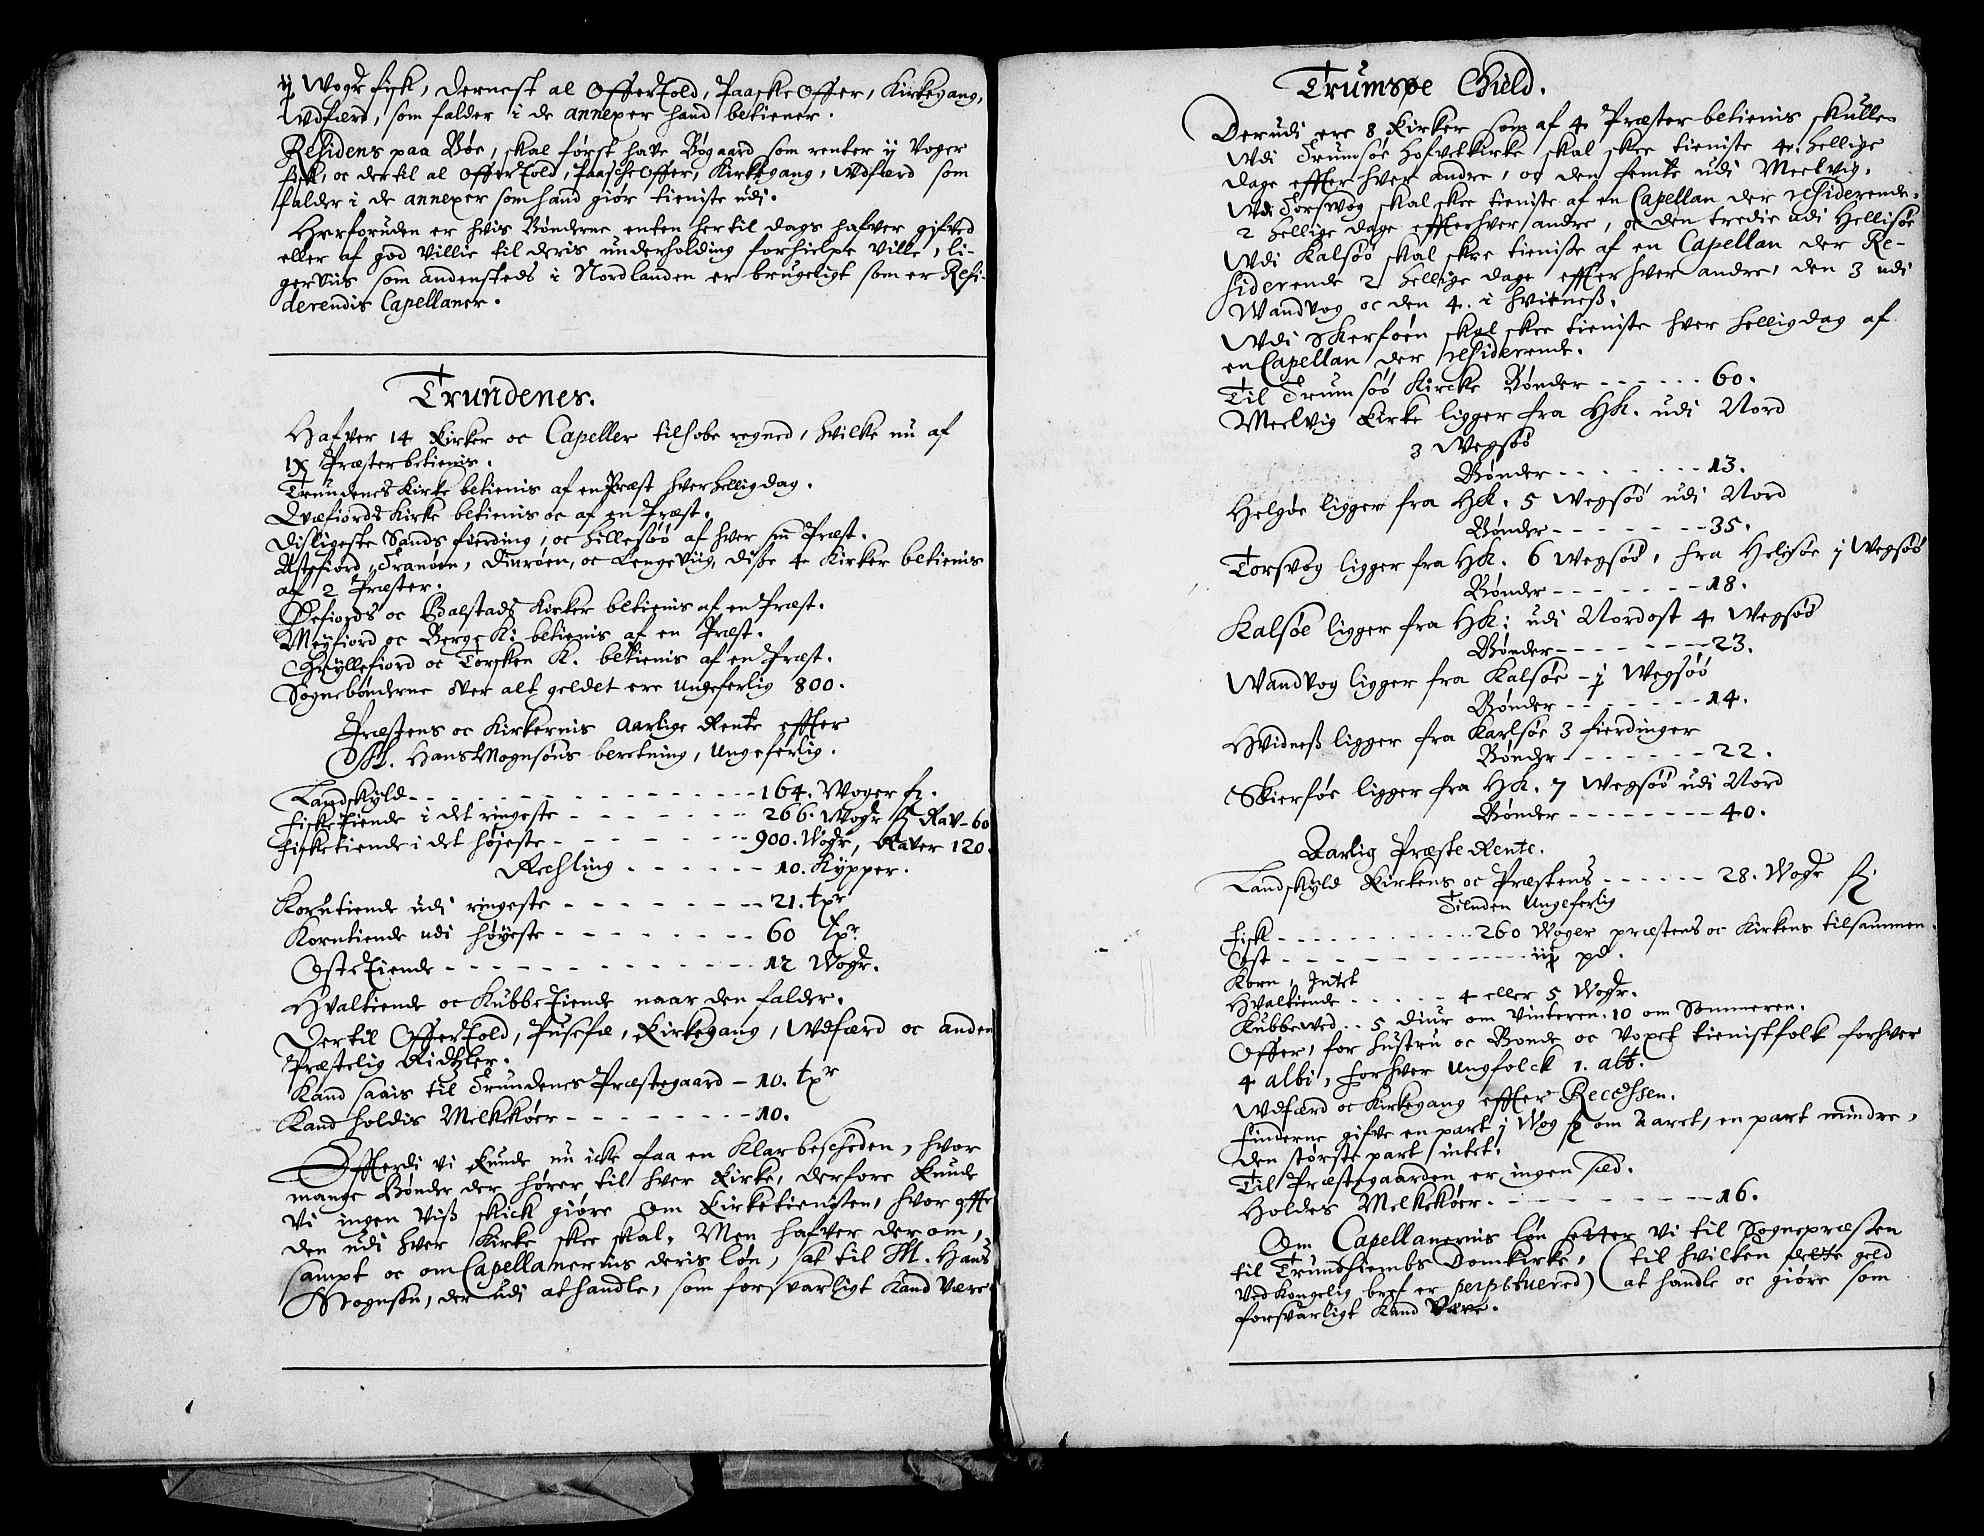 ij Wogr fisk, dernest al Offertold, Paaske Offer, Kirkegang,
Udfærd, som falder i de annexer hand betiener.
Residens paa Bøe, skal først have Bøgaard som renter ij Voger
fisk, oc dertil al Offertold, Paasche Offer, Kirkegang, Udfærd som
falder i de annexer som hand giør tieniste udi.
Herforuden er hvis Bønderne enten her til dags hafver gifved
eller af god Villie til deris underholding forhielpe Ville, li-
gerviis som andensteds i Nordlanden er brugeligt som er Resi-
derendis Capellaner.
Trundenes.
Hafver 14 Kirker oc Capeller tilhobe regned, hvilke nu af
IX Præster betienis.
Trundenes Kirke betienis af en Præst hver hellig dag.
Qvæfiords Kirke betienis oc af en Præst.
Disligeste Sands fierding, oc Hillesøø af hver sin Præst.
Astefiord, Tranøen, Dinrøen, oc Lengeviig, disse 4 Kirker betienis
af 2 Præster.
Øefiords oc Balstads Kirker betienis af en Præst.
Meyfiord oc Bergs K: betienis af en Præst.
Gryllefiord oc Torsken K. betienis af en Præst.
Sognebønderne over alt geldet ere Ungeferlig 800.
Præstens oc Kirkernis Aarlige Rente effter
M. Hans Mognsøns beretning, Ungeferlig.
Landskyld - - - - - - - - - - 164. Woger f.
Fisketiende i det ringeste - - - - - - 266. Wogr f Rav - 60
Fisketiende i det højeste - - - - - - 900. Wogr, Raver 120.
Rechling - - - - - - 10. Kypper.
Korntiende udi ringeste - - - - - - - 21. tpr
Korntiende udi høyeste - - - - - - - 60 tpr
Ostetiende - - - - - - - - - - - 12 Wogr.
Hvaltiende oc Kubbetiende naar den falder.
Dertil Offertold, Pusefæ, Kirkegang, Udfærd oc anden
Præstelig Ridtzler.
Kand saais til Trundenes Præstegaard - 10. tpr
Kand holdis Melkkøer - - - - - - - 10.
Effterdi vi kunde nu icke faa en Klar bescheden, hvor
mange Bønder der hører til hver Kirke, derfore kunde
Vi ingen Viss skick giøre om Kirketienisten, hvor offte
den udi hver Kirke skee skal, Men hafver der om,
sampt oc om Capellanernis deris løn, sat til M. Hans
Mognsøn, der udi at handle, som forsvarligt Kand Være
Trumsøe Gield.
Derudi ere 8 Kirker som af 4 Præster betienis skulle
Udi Trumsøe hofvetkirke skal skee tieniste 4. hellige
dage effter hver andre, oc den femte udi Meelvig.
Udi Torsvog skal skee tieniste af en Capellan der residerende
2 hellige dage effterhver andre, oc den tredie udi Hellisøe
Udi Kalsøø skal skee tieniste af en Capellan der Re-
siderende 2 hellige dage effter hver andre, den 3 udi
Wandvog oc den 4. i Hvitness.
Udi Skerføen skal skee tieniste hver hellig dag af
en Capellan der residerende.
Til Trumsøø Kircke Bønder - - - - - - 60.
Meelvig Kirke ligger fra HK. udi Nord
3 Wegsøø
Bønder - - - - - - - 13.
Helgøe ligger fra HK. 5 Wegsøø udi Nord
Bønder - - - - - - - 35.
Torsvog ligger fra HK. 6 Wegsøø, fra Helisøe j Wegsøø
Bønder - - - - - - - 18.
Kalsøe ligger fra HK: udi Nordost 4 Wegsøø
Bønder - - - - - - - 23.
Wandvog ligger fra Kalsøe - j Wegsøø
Bønder - - - - - - - 14.
Hvidness ligger fra Karlsøe 3 fierdinger
Bønder - - - - - - - 22.
Skierføe ligger fra HK. 7 Wegsøø udi Nord
Bønder - - - - - - - - 40.
Aarlig Præste Rente.
Landskyld Kirkens oc Præstens - - - - - - 28. Wogr f.
Tienden Ungeferlig
Fisk - - - - - - - - - - - 260 Woger præstens oc Kirkens tilsammen.
Ost - - - - - - - - - - - - - iij pd.
Korn, Intet
Hvaltiende - - - - - 4 eller 5 Wogr.
Kubbeved - - 5 Diur om Vinteren. 10 om Sommeren.
Offer, for Hustru oc Bonde oc Voxet tienistfolk forhver
4 albi, forhver Ungfolck 1. alb.
Udfærd oc Kirkegang effter Recessen.
Finderne gifve en part j Wog f om Aaret, en part mindre,
den største part intet.
Til Præstegaarden er ingen sæd.
Holdes Melkekøer - - - - - - - - - 16.
Om Capellanernis løn setter vi til Sognepræsten
til Trundhiembs Domkirke, (til hvilken dette geld
Ved Kongelig bref er perpetuered) at handle oc giøre som
forsvarligt Kand Være.